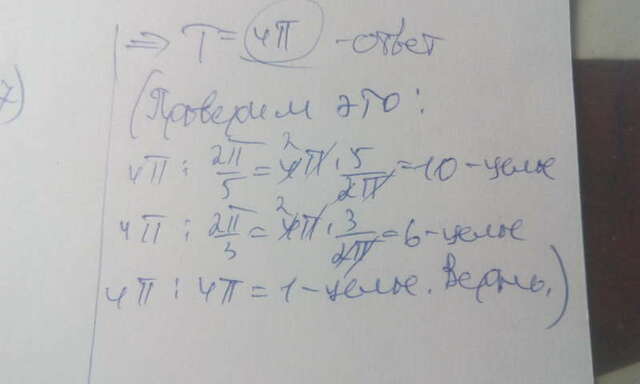 7)
⇒ T = 4π - ответ
(Проверим это:
4π : 2π/5 = 4π · 5/2π = 10 - целые
4π : 2π/3 = 4π · 3/2π = 6 - целые
4π : 4π = 1 - целые. Верно.)